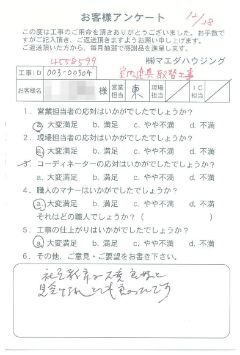 お客様アンケート
12/18
この度は工事のご用命を頂きありがとうございました。お手数で
すがご記入頂き、ご返送頂きますようお願い申し上げます。
ご返送頂いた方から、毎月抽選で感謝品を進呈します。
4558599
㈱マエダハウジング
工事ID 003-00304
取替工事
お客様名 様 営業担当 現場担当 IC担当
1. 営業担当者の応対はいかがでしたでしょうか?
a. 大変満足 b. 満足 c. やや不満 d. 不満
2. 現場担当者の応対はいかがでしたでしょうか?
a. 大変満足 b. 満足 c. やや不満 d. 不満
3. コーディネーターの応対はいかがでしたでしょうか?
a. 大変満足 b. 満足 c. やや不満 d. 不満
4. 職人のマナーはいかがでしたでしょうか?
a. 大変満足 b. 満足 c. やや不満 d. 不満
それはどの職人でしょうか? ( )
5. 工事の仕上がりはいかがでしたでしょうか?
a. 大変満足 b. 満足 c. やや不満 d. 不満
6. その他、ご意見・ご要望をお書き下さい。